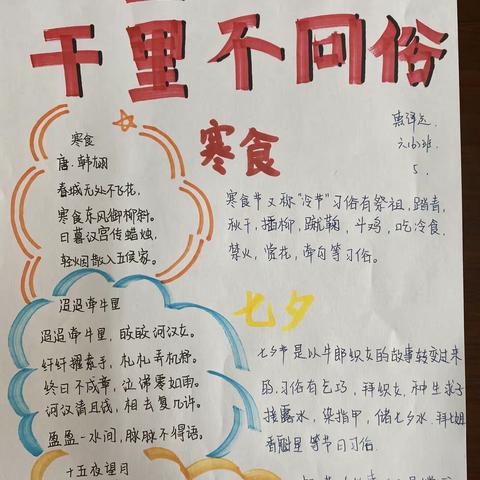 千里不同俗
寒食
唐·韩翃
春城无处不飞花,
寒食东风御柳斜。
日暮汉宫传蜡烛,
轻烟散入五侯家。
寒食
六(6)班
5.
寒食节又称"冷节"习俗有祭祖,踏青,
秋千,插柳,蹴鞠,斗鸡,吃冷食,
禁火,赏花,牵勾等习俗。
迢迢牵牛星
迢迢牵牛星,皎皎河汉女。
纤纤擢素手,札札弄机杼。
终日不成章,泣涕零如雨。
河汉清且浅,相去复几许。
盈盈一水间,脉脉不得语。
七夕
七夕节是以牛郎织女的故事转变过来
的,习俗有乞巧,拜织女,种生求子
接露水,染指甲,储七夕水,拜七姐
看 星等节日习俗。
十五夜望月